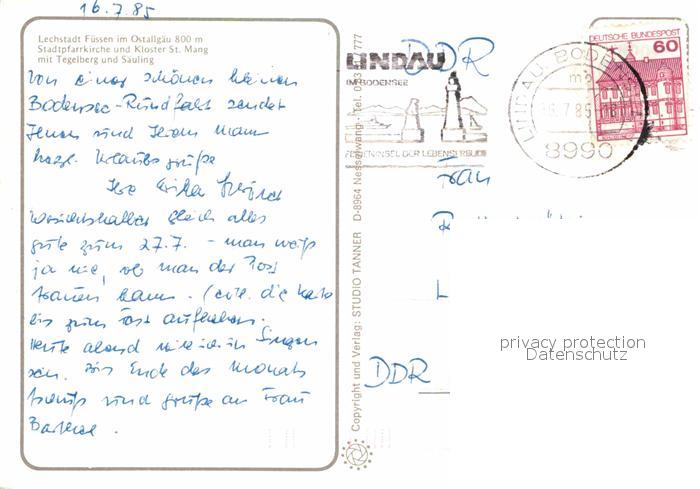 16.7.85
Lechstadt Füssen im Ostallgäu 800 m
Stadtpfarrkirche und Kloster St. Mang
mit Tegelberg und Säuling
Von einer schönen kleinen
Bodensee-Rundfahrt sendet
Ihnen und Ihrem Mann
herzl. Urlaubsgrüße
Ihre Erika
Vorsichtshalber gleich alles
gute zum 27.7. - man weiß
ja nie, ob man der Post
trauen kann. (evtl. die Karte
bis zum Fest aufheben.
Heute abend will ich in Singen
sein. Bis Ende des Monats
tschüß und grüße an Frau
DDR
LINDAU
IM BODENSEE
FERIENINSEL DER LEBENSFREUDE
LINDAU, BODENSEE
8990
DEUTSCHE BUNDESPOST
60
Frau
L
DDR
Copyright und Verlag: STUDIO TANNER D-8964 Nesselwang
privacy protection
Datenschutz